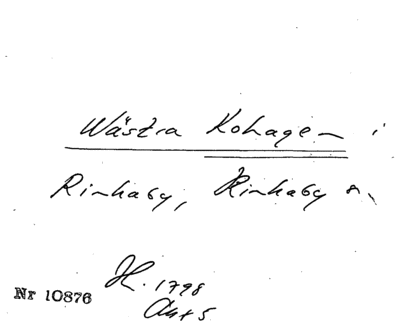 Wästra Kohagen i
Rinkaby, Rinkaby sn
H. 1798
Akt 5
Nr 10876